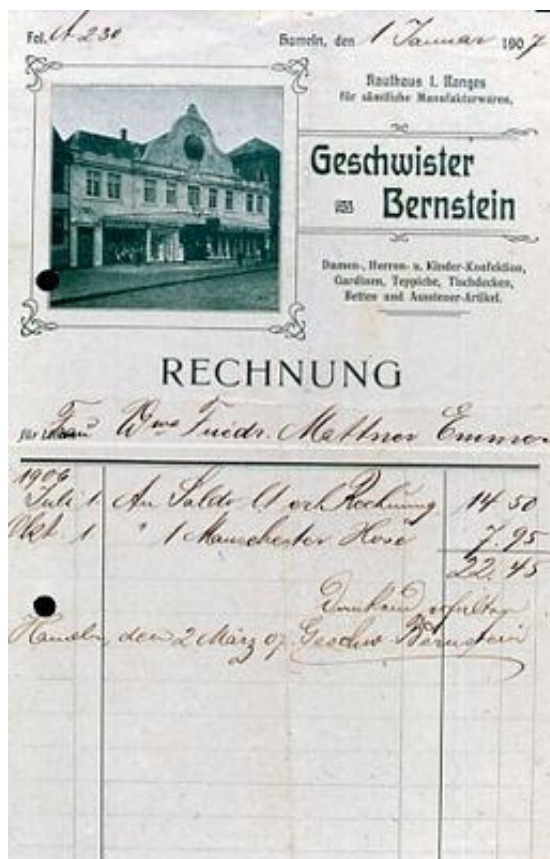 Fol. A 230
Hameln, den 1 Januar 1907
Kaufhaus I. Ranges
für sämtliche Manufakturwaren.
Geschwister
Bernstein
Damen-, Herren- u. Kinder-Konfektion,
Gardinen, Teppiche, Tischdecken,
Betten und Aussteuer-Artikel.
RECHNUNG
für Frau Wwe Friedr. Mattner
1906
Juli 1 An Saldo Rechnung 14 50
Okt. 1 " 1 Manchester Hose 7.95
22.45
Dankend erhalten
Hameln, den 2 März 07. Geschw. Bernstein